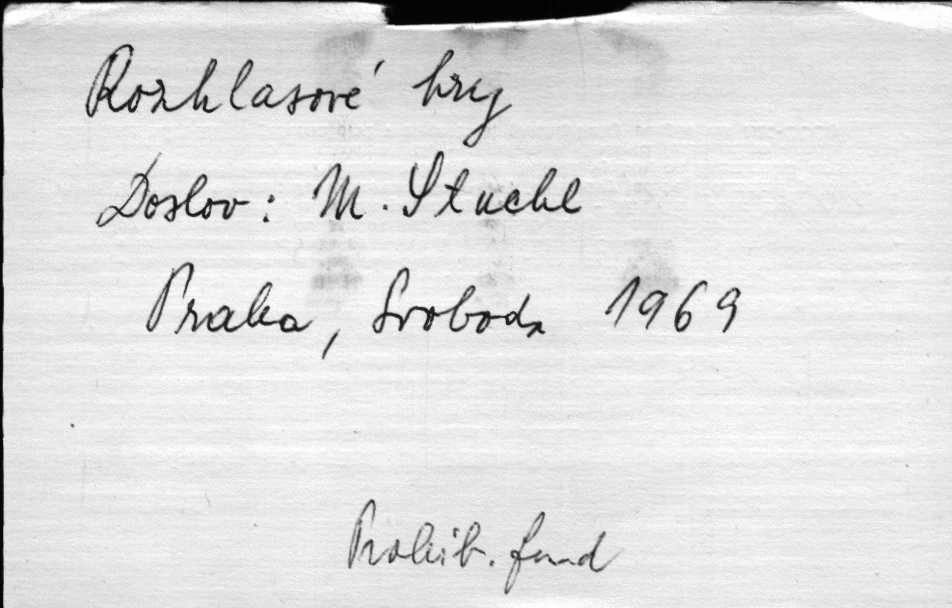 Rozhlasové hry
Doslov: M. Stuchl
Praha, Svoboda 1969
Prohib. fond